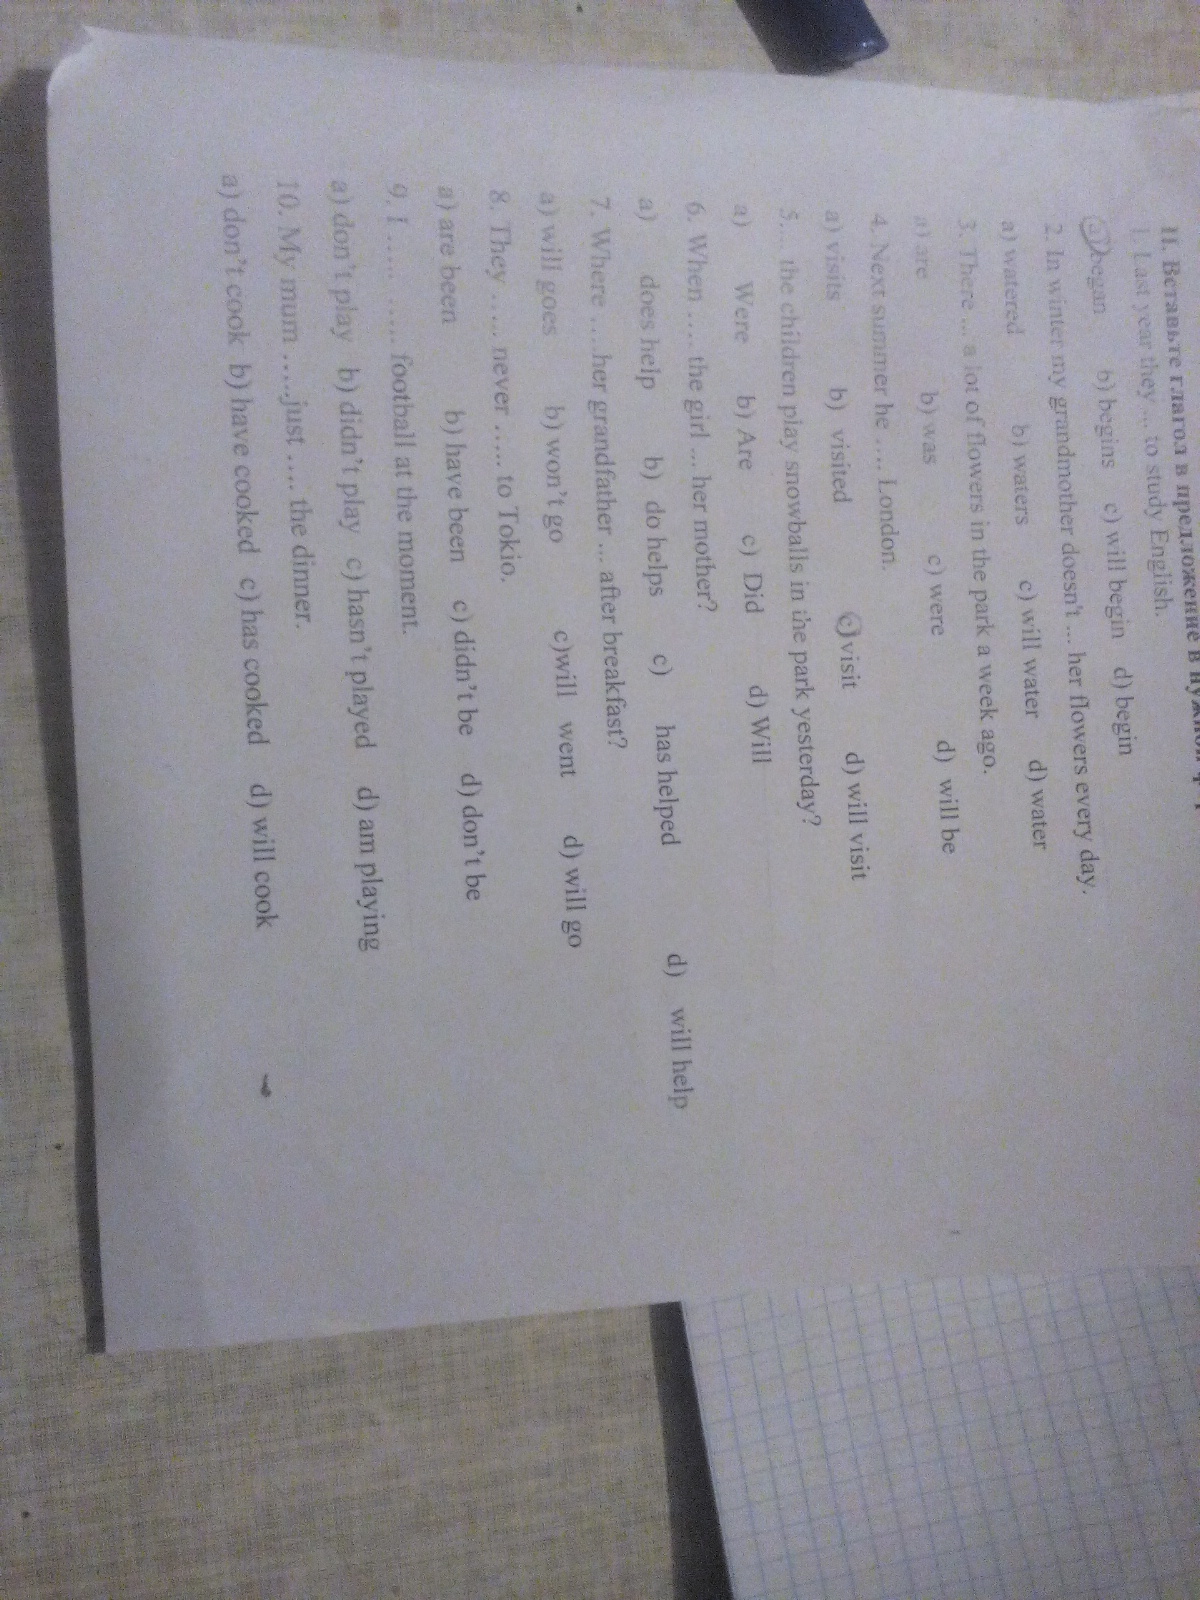 II. Вставьте глагол в предложение в
1. Last year they ... to study English.
a) began b) begins c) will begin d) begin
2. In winter my grandmother doesn't ... her flowers every day.
a) watered b) waters c) will water d) water
3. There ... a lot of flowers in the park a week ago.
a) are b) was c) were d) will be
4. Next summer he .... London.
a) visits b) visited c) visit d) will visit
5.... the children play snowballs in the park yesterday?
a) Were b) Are c) Did d) Will
6. When .... the girl ... her mother?
a) does help b) do helps c) has helped d) will help
7. Where ....her grandfather ... after breakfast?
a) will goes b) won't go c)will went d) will go
8. They ..... never ..... to Tokio.
a) are been b) have been c) didn't be d) don't be
9. I ..... ...... football at the moment.
a) don't play b) didn't play c) hasn't played d) am playing
10. My mum .....just .... the dinner.
a) don't cook b) have cooked c) has cooked d) will cook